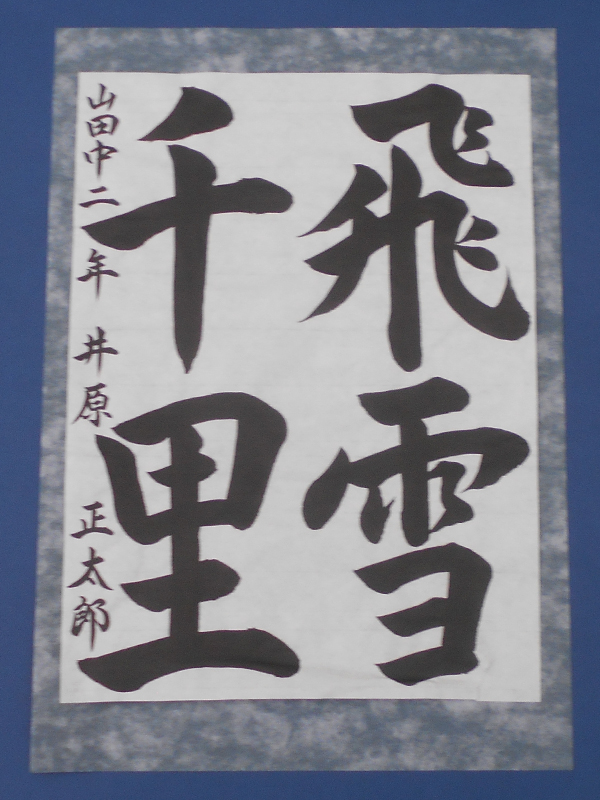 飛雪
千里
山田中二年 井原 正太郎